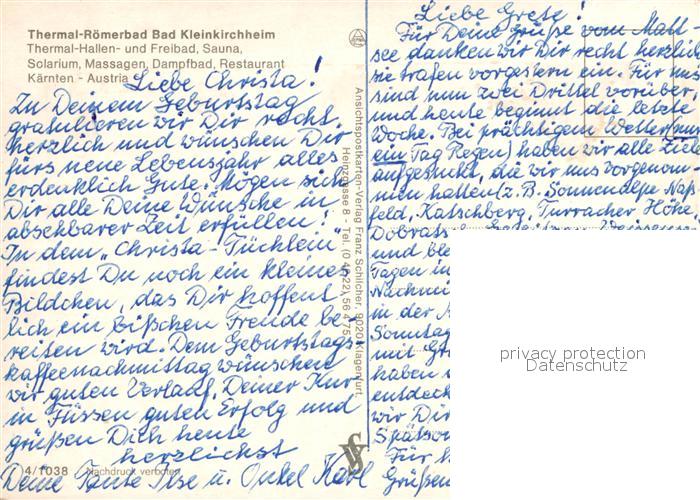 Thermal-Römerbad Bad Kleinkirchheim
Thermal-Hallen- und Freibad, Sauna,
Solarium, Massagen, Dampfbad, Restaurant
Kärnten - Austria
Liebe Christa!
Zu Deinem Geburtstag
gratulieren wir Dir recht
herzlich und wünschen Dir
fürs neue Lebensjahr alles
erdenklich Gute. Mögen sich
Dir alle Deine Wünsche in
absehbarer Zeit erfüllen!
In dem "Christa-Tüchlein"
findest Du noch ein kleines
Bildchen, das Dir hoffent-
lich ein bißchen Freude be-
reiten wird. Dem Geburtstags-
kaffeenachmittag wünschen
wir guten Verlauf, Deiner Kur
in Füssen guten Erfolg und
grüßen Dich heute
herzlichst
Deine Tante Ilse u. Onkel Karl
4/1038 Nachdruck verboten
Ansichtspostkarten-Verlag Franz Schilcher, 9020 Klagenfurt,
Heinzgasse 8 - Tel. (0 42 22) 56 4 75
Liebe Grete!
Für Deine Grüße vom Matt-
see danken wir Dir recht herzlich
sie trafen vorgestern ein. Für uns
sind nun zwei Drittel vorüber,
und heute beginnt die letzte
Woche. Bei prächtigem Wetter (nur
ein Tag Regen) haben wir alle Ziele
aufgesucht, die wir uns vorgenom-
men hatten (z. B. Sonnenalpe Naß-
feld, Katschberg, Turracher Höhe
Dobratsch
und
Tagen in
Nachmi
in der
Sonntag
mit Gr
haben
entdeck
wir Dir
Für
Grüßen
privacy protection
Datenschutz